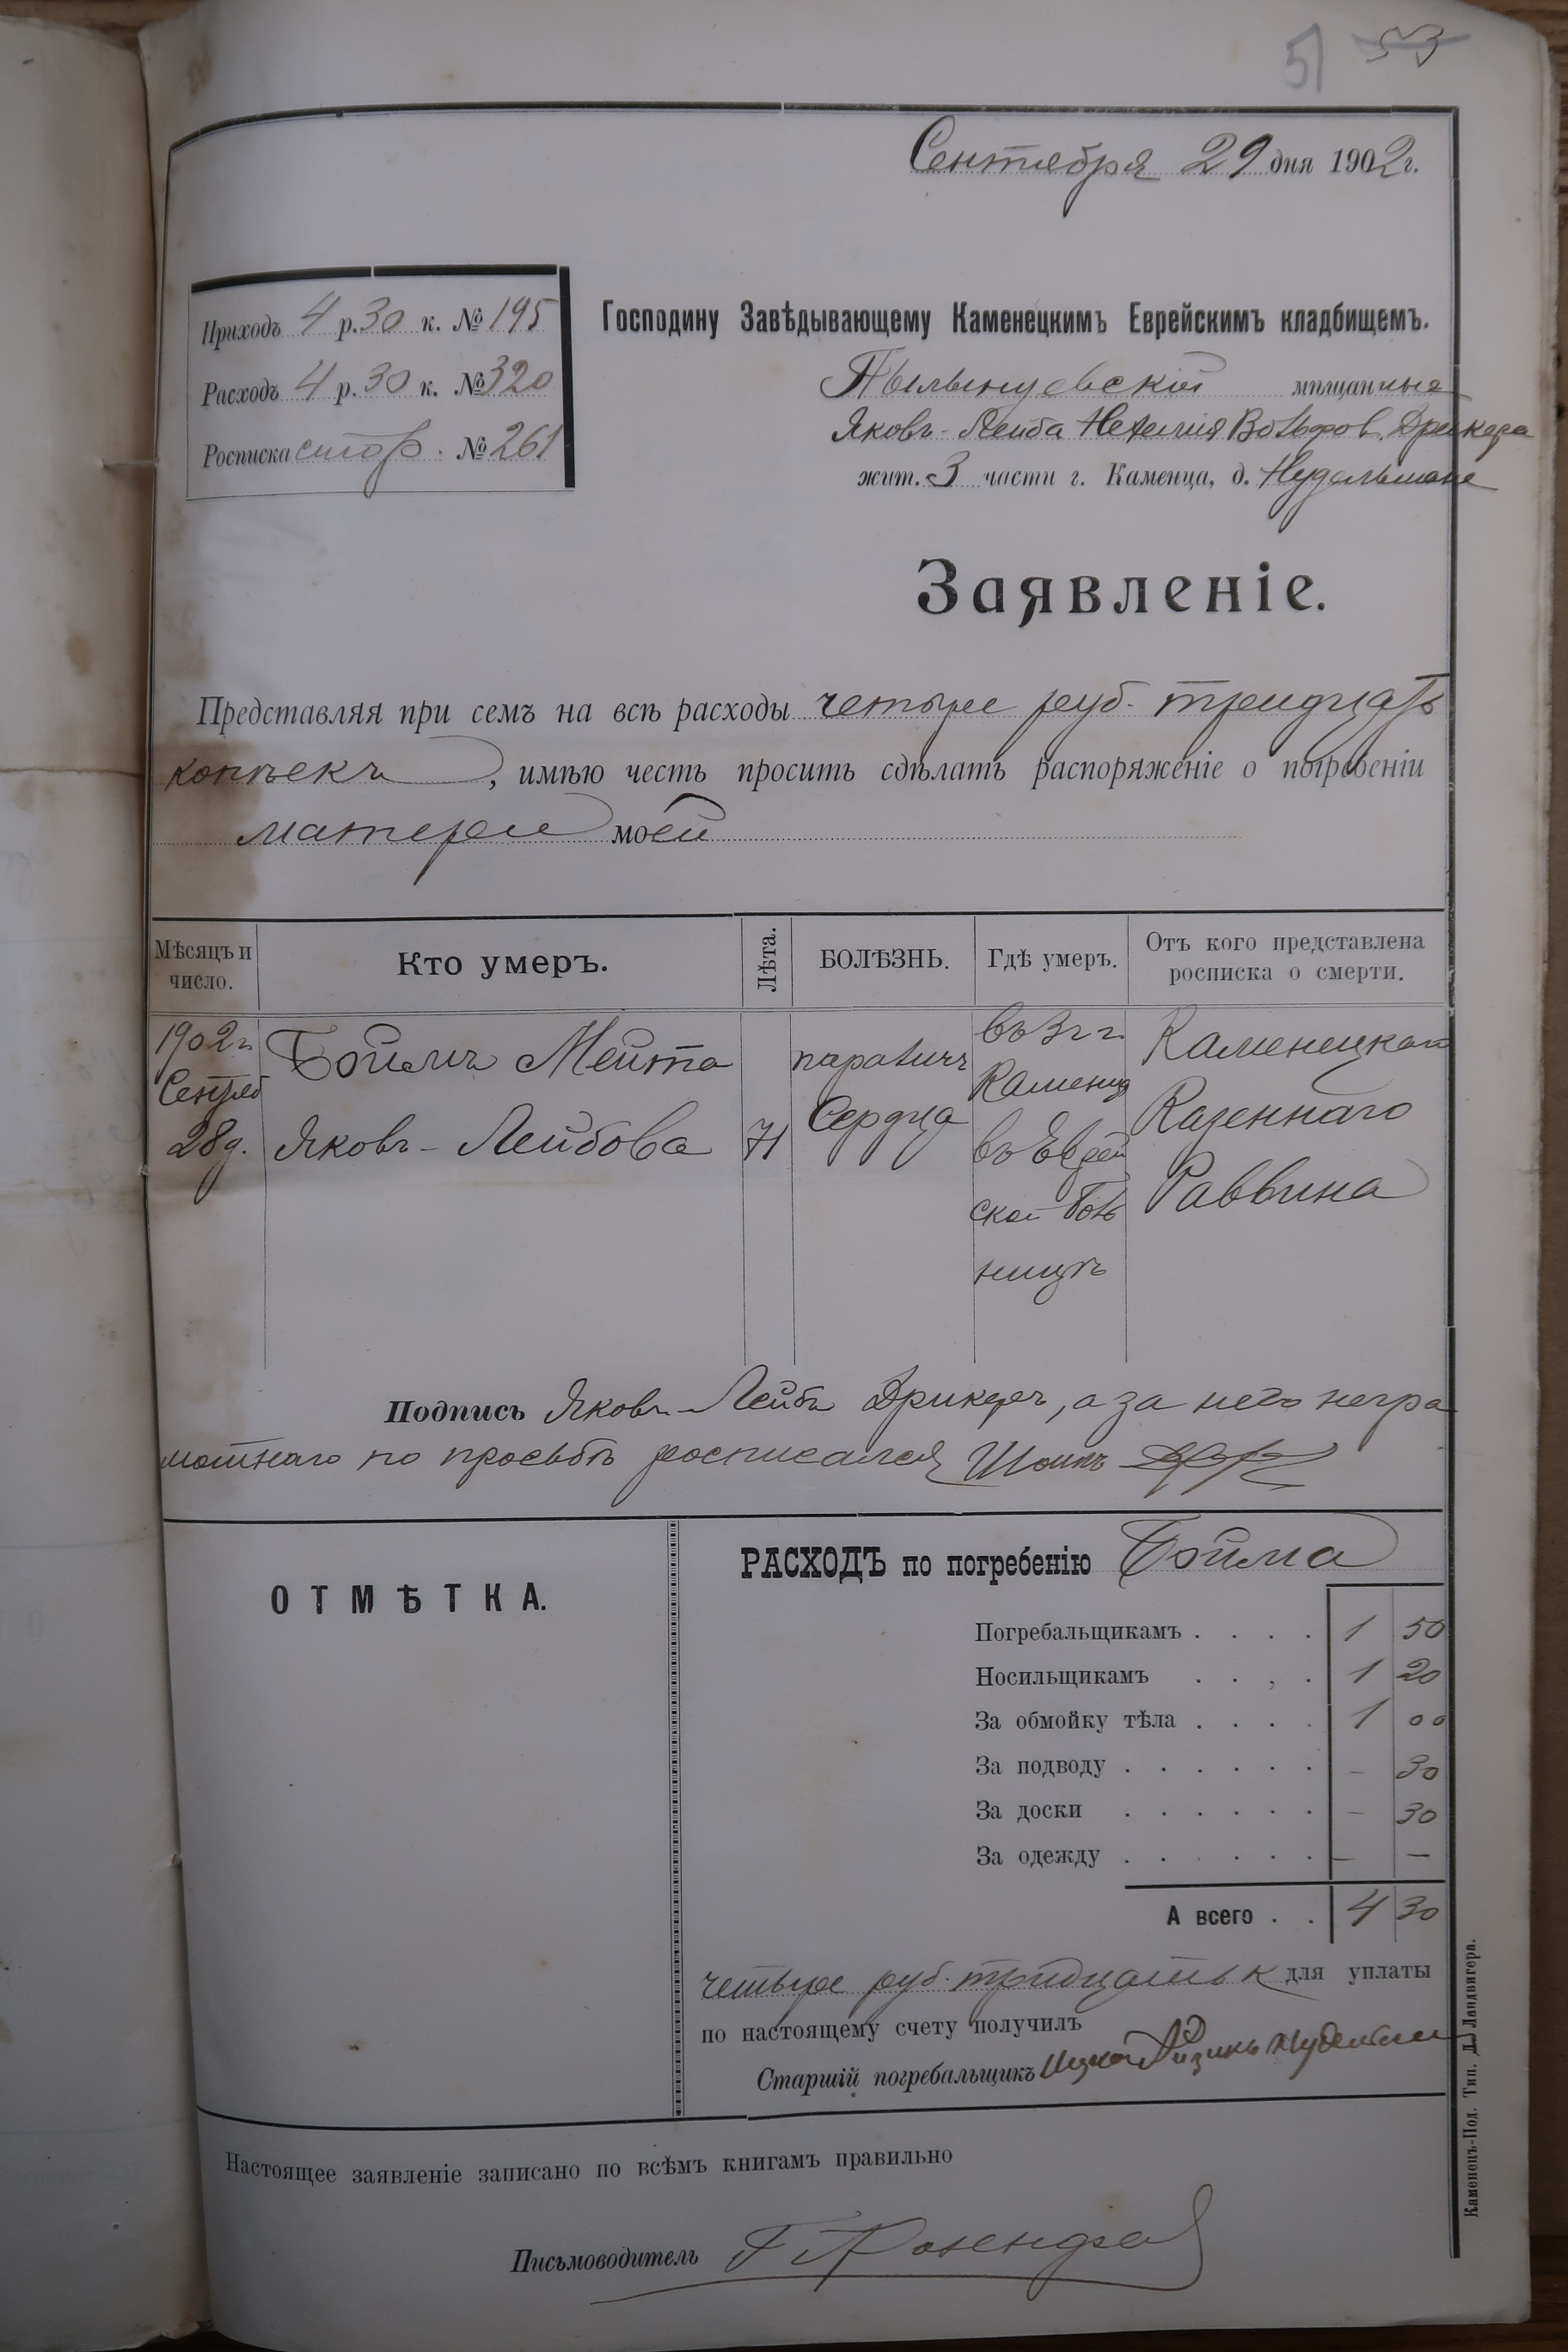 51 53
Сентября 29 дня 1902 г.
Приходъ 4 р. 30 к. № 195
Расходъ 4 р. 30 к. № 320
Росписка № 261
Господину Завѣдывающему Каменецкимъ Еврейскимъ кладбищемъ.
мѣщанина
Яковъ-Лейба Вольфов. Дрикера
жит. 3 части г. Каменца, д. Нудельмана
Заявленіе.
Представляя при семъ на всѣ расходы четыре руб. тридцать
копѣекъ, имѣю честь просить сдѣлать распоряженіе о погребеніи
матери моей
Мѣсяцъ и число.
Кто умеръ.
Лѣта.
БОЛѢЗНЬ.
Гдѣ умеръ.
Отъ кого представлена росписка о смерти.
1902 г.
Сентяб
28 д.
Боймъ Мейта
Яковъ-Лейбова
71
параличъ
сердца
въ 3 ч г.
Каменца
въ Еврей
ской боль
ницѣ
Каменецкаго
Казеннаго
Раввина
Подпись Яковъ-Лейба Дрикеръ, а за него негра
мотнаго по просьбѣ росписался
ОТМѢТКА.
РАСХОДЪ по погребенію Бойма
Погребальщикамъ . . . . 1 50
Носильщикамъ . . , . 1 20
За обмойку тѣла . . . . 1 00
За подводу . . . . . . – 30
За доски . . . . . . – 30
За одежду . . . . . . – –
А всего . . 4 30
четыре руб. тридцать к для уплаты
по настоящему счету получилъ
Старшій погребальщикъ Ицко Айзикъ Нудельман
Настоящее заявленіе записано по всѣмъ книгамъ правильно
Письмоводитель Г. Розенфел
Каменецъ-Под. Тип. Д. Ландвигера.